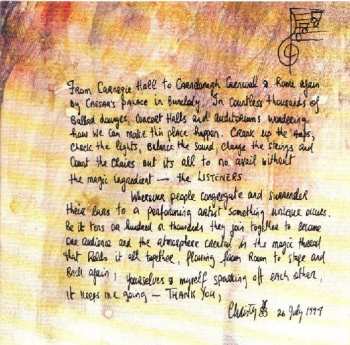 From Carnegie Hall to Carndonagh Carnival & Home again
by Caesar's palace in Buncrana. In countless thousands of
Ballad Lounges, Concert Halls and auditoriums wondering
how we can make this place happen. Crank up the amps,
check the lights, balance the sound, change the strings and
Count the Chairs but its all to no avail without
the magic ingredient — the LISTENERS
Wherever people congregate and surrender
their ears to a performing artist something unique occurs.
Be it tens or hundred or thousands they join together to become
one audience and the atmosphere created is the magic thread
that holds it all together, flowing from Room to stage and
Back again, yourselves & myself sparking off each other,
it keeps me going — THANK YOU,
Christy 26 July 1997